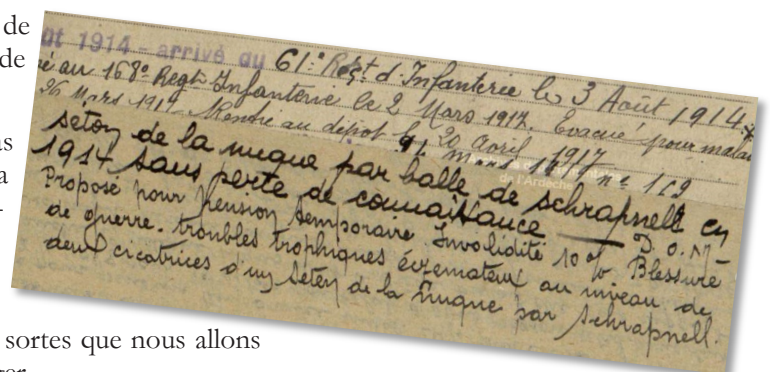 de
de
as
a
-
ût 1914 - arrivé au 61e Régt d'Infanterie le 3 Août 1914.
é au 168e Regt Infanterie le 2 Mars 1917. Évacué pour malad
26 Mars 1917 Rentré au dépôt le 20 avril 1917
1919 no 119
de l'Ardèche
seton de la nuque par balle de schrapnell en
1914 sans perte de connaissance — D.O.M-
Proposé pour pension temporaire Invalidité 10 % Blessure
de guerre. troubles trophiques éczemateux au niveau de
deux cicatrices d'un seton de la nuque par schrapnell.
sortes que nous allons